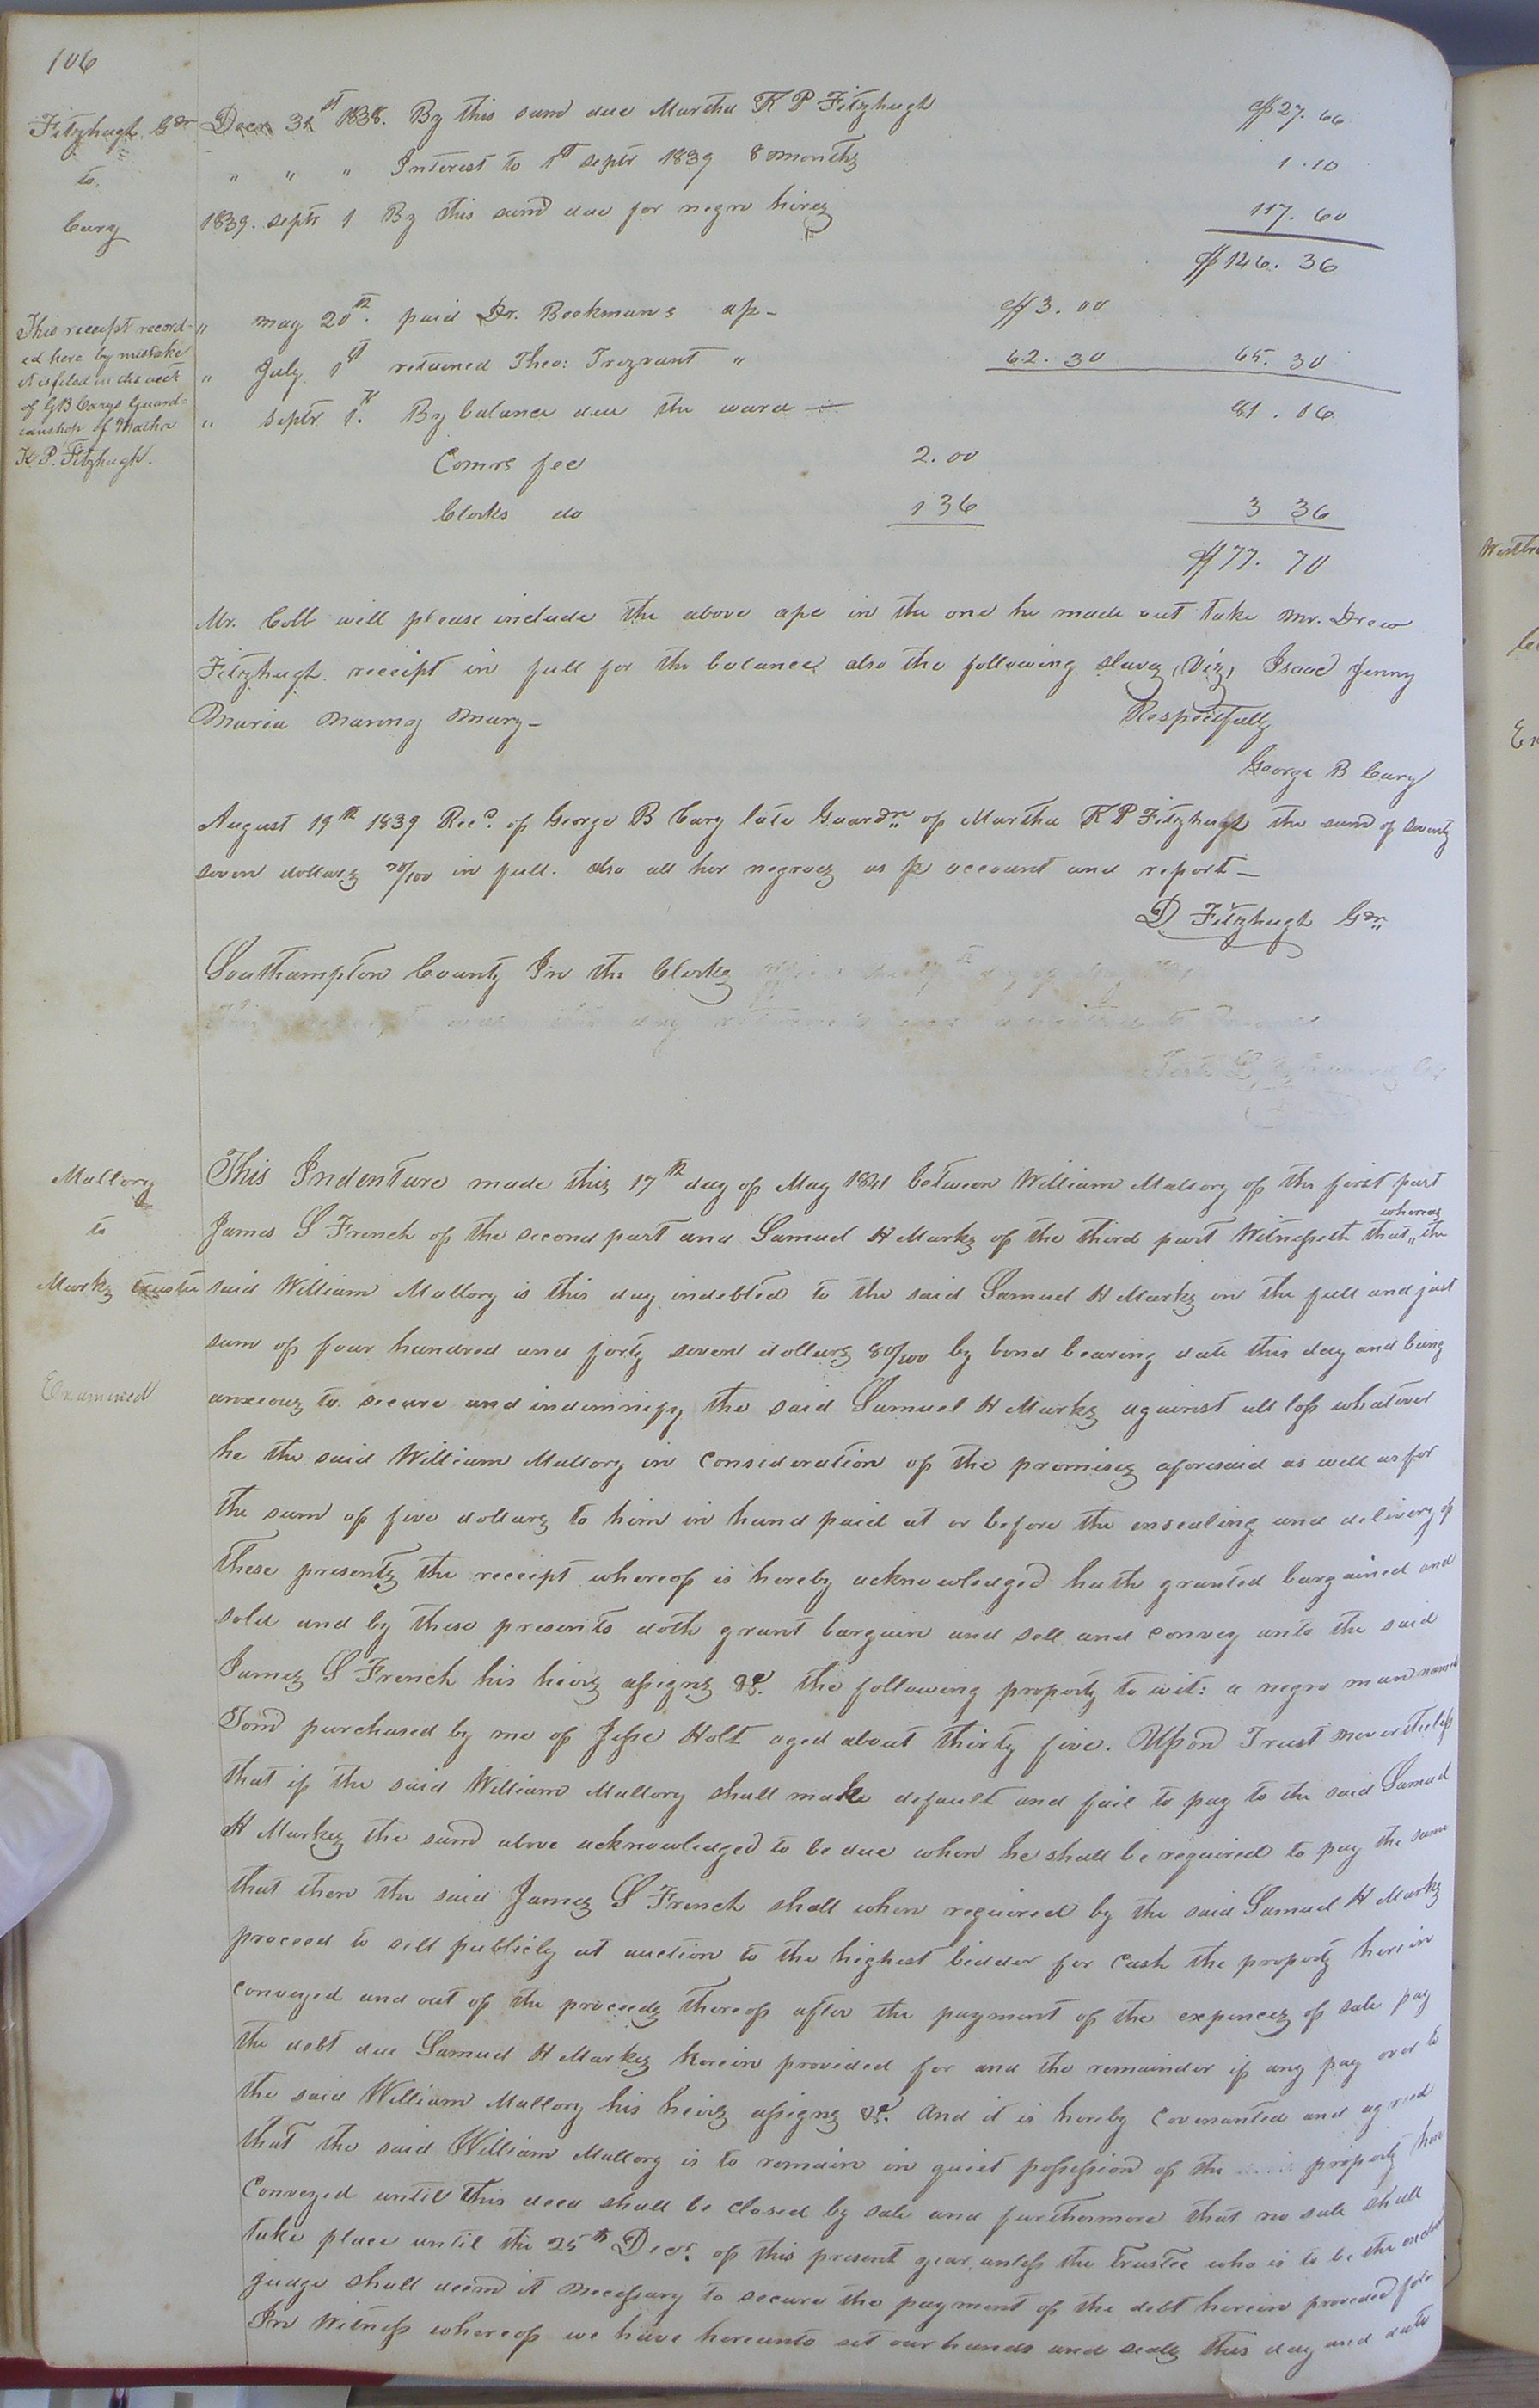 106
Fitzhugh Gdr
to
Cary
Decr 31st 1838. By this sum due Martha K P Fitzhugh $27.66
" " " Interest to 1st Septr 1839 8 months 1.10
1839. Septr 1 By this sum due for negro hires 117.60
$146.36
This receipt record-
ed here by mistake
it is filed in the acct
of GB Carys Guard-
ianship of Martha
K P. Fitzhugh.
" May 20th. paid Dr. Bookmans ap- $3.00
" July 1st retained Theo: Trezvant " 62.30 65.30
" Septr 1st. By balance due the ward — 81.06
Comrs fee 2.00
Clerks do 1 36 3 36
$77.70
Mr. Cobb will please include the above apc in the one he made out take Mr. Drew
Fitzhugh receipt in full for the balance also the following slaves, (Viz) Isaac Jenny
Maria Manny Mary-
Respectfully
George B Cary
August 19th 1839 Recd. of George B Cary late Guardn of Martha K P Fitzhugh the sum of seventy
seven dollars 70/100 in full. also all her negroes as pr account and report-
D Fitzhugh Gdn
Southampton County In the Clerks office
this day
Teste
Mallory
to
Marks trustee
Examined
This Indenture made this 17th day of May 1841 between William Mallory of the first part
James S French of the second part and Samuel H Marks of the third part Witnesseth that " whereas the
said William Mallory is this day indebted to the said Samuel H Marks in the full and just
sum of four hundred and forty seven dollars 80/100 by bond bearing date this day and being
anxious to secure and indemnify the said Samuel H Marks against all loss whatever
he the said William Mallory in consideration of the premises aforesaid as well as for
the sum of five dollars to him in hand paid at or before the ensealing and delivery of
these presents the receipt whereof is hereby acknowledged hath granted bargained and
sold and by these presents doth grant bargain and sell and convey unto the said
James S French his heirs assigns &c. the following property to wit: a negro man named
Tom purchased by me of Jesse Holt aged about thirty five. Upon Trust nevertheless
that if the said William Mallory shall make default and fail to pay to the said Samuel
H Marks the sum above acknowledged to be due when he shall be required to pay the same
that then the said James S French shall when required by the said Samuel H Marks
proceed to sell publicly at auction to the highest bidder for cash the property herein
conveyed and out of the proceeds thereof after the payment of the expences of sale pay
the debt due Samuel H Marks herein provided for and the remainder if any pay over to
the said William Mallory his heirs assigns &c. And it is hereby covenanted and agreed
that the said William Mallory is to remain in quiet possession of the property here
Conveyed until this deed shall be closed by sale and furthermore that no sale shall
take place until the 25th Decr. of this present year unless the trustee who is to be the
judge shall deem it necessary to secure the payment of the debt herein provided for
In Witness whereof we have hereunto set our hands and seals this day and date